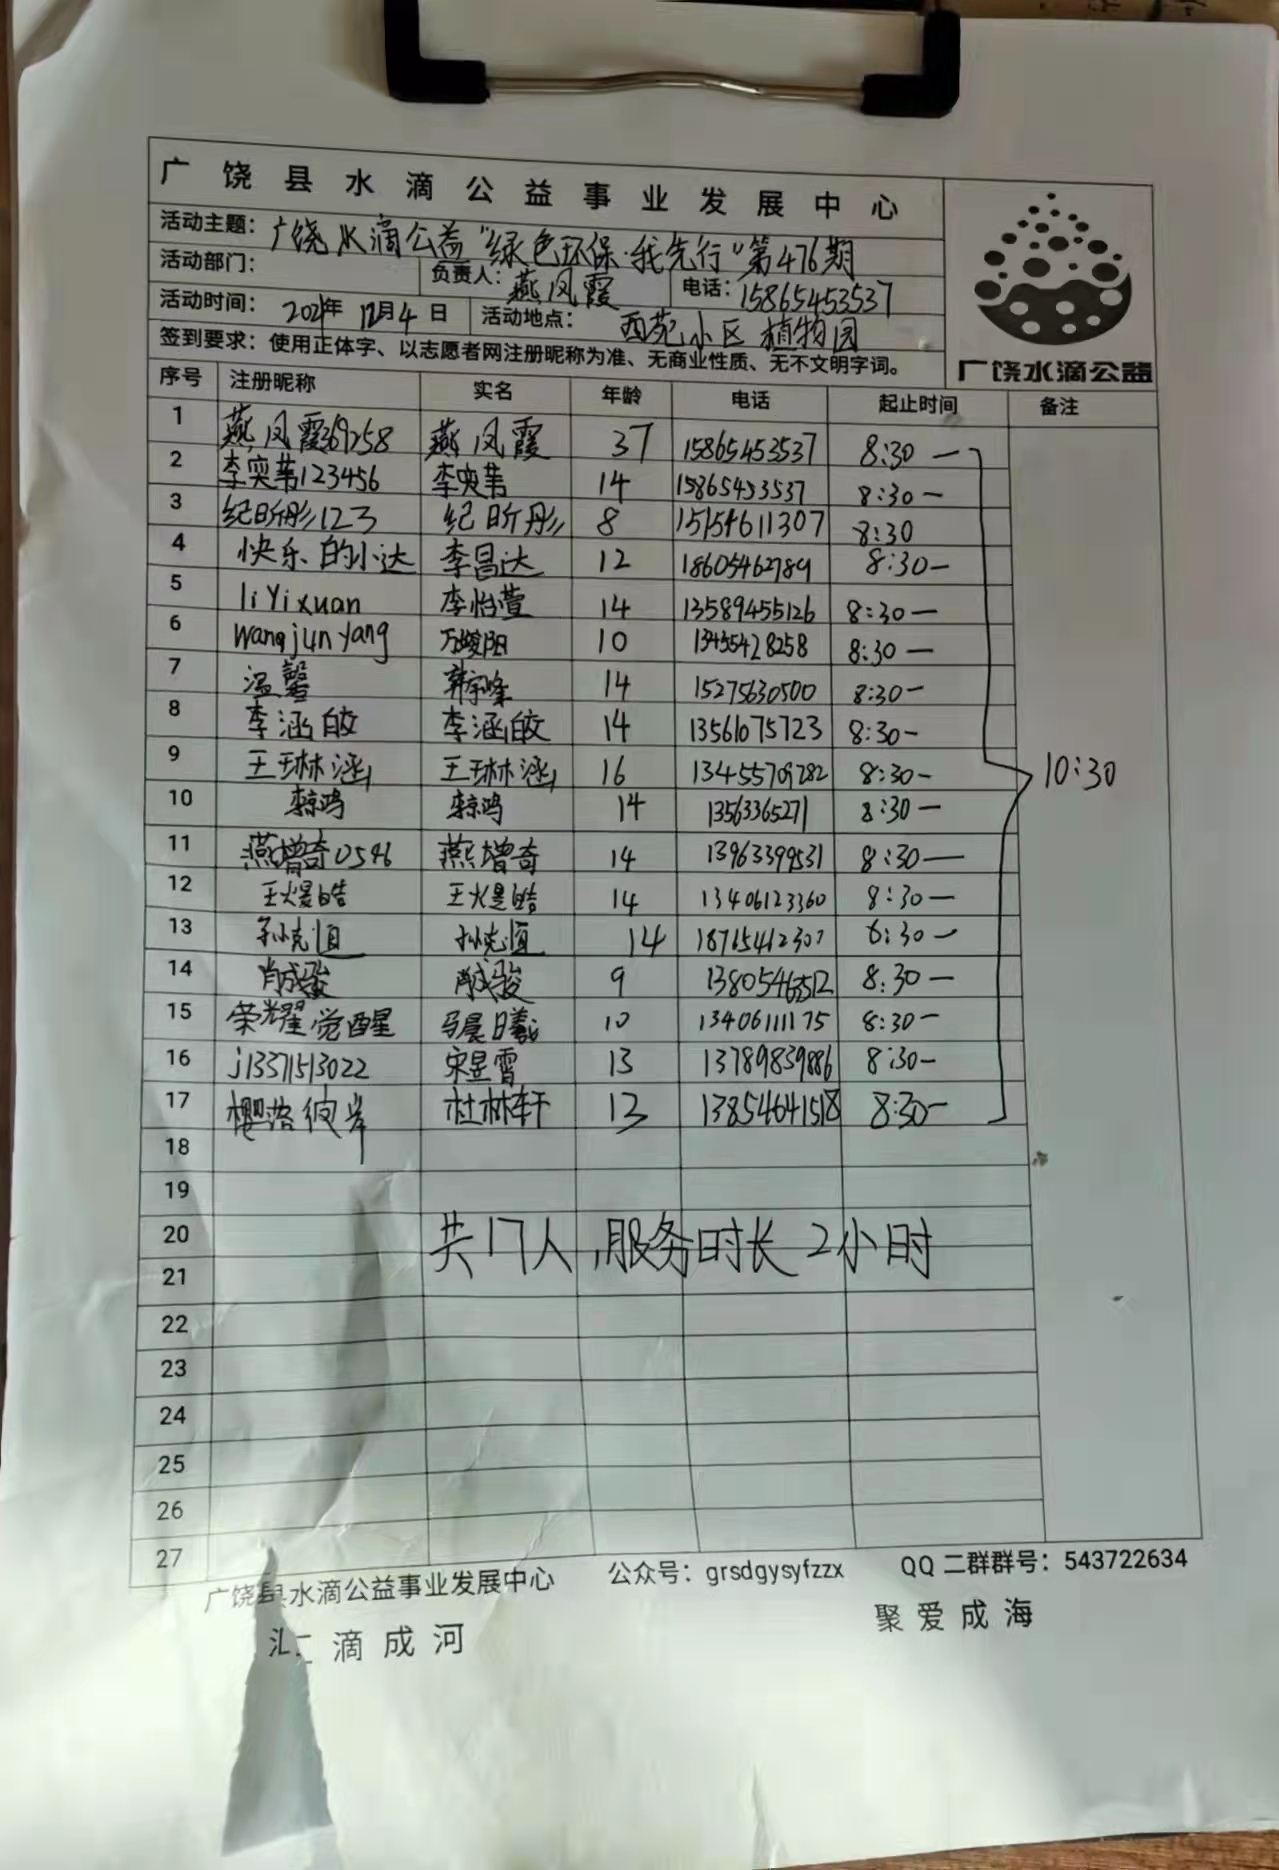 广饶县水滴公益事业发展中心
活动主题：广饶水滴公益"绿色环保·我先行"第476期
活动部门： 负责人：燕凤霞 电话：15865453537
活动时间：2021年 12月4日 活动地点：西苑小区 植物园
签到要求：使用正体字、以志愿者网注册昵称为准、无商业性质、无不文明字词。
广饶水滴公益
序号 注册昵称 实名 年龄 电话 起止时间 备注
1 燕凤霞369258 燕凤霞 37 15865453537 8:30—
2 李奕苇123456 李奕苇 14 15865453537 8:30—
3 纪昕彤123 纪昕彤 8 15154611307 8:30
4 快乐的小达 李昌达 12 18605462789 8:30—
5 liYixuan 李怡萱 14 13589455126 8:30—
6 wangjunyang 10 13455428258 8:30—
7 温馨 14 15275630500 8:30—
8 李涵皎 李涵皎 14 13561075723 8:30—
9 王琳涵 王琳涵 16 13455709282 8:30—
10:30
10 14 13563365271 8:30—
11 燕增奇0546 燕增奇 14 13963399531 8:30—
12 王煜皓 王煜皓 14 13406123360 8:30—
13 孙克恒 孙克恒 14 18765412307 8:30—
14 肖成骏 肖成骏 9 8:30—
15 荣耀觉醒 马晨曦 10 13406111175 8:30—
16 j13371513022 宋昱霄 13 13789839886 8:30—
17 樱落彼岸 杜林轩 13 13854641518 8:30—
18
19
20 共17人，服务时长2小时
21
22
23
24
25
26
27
广饶县水滴公益事业发展中心 公众号：grsdgysyfzzx QQ二群群号：543722634
汇滴成河 聚爱成海